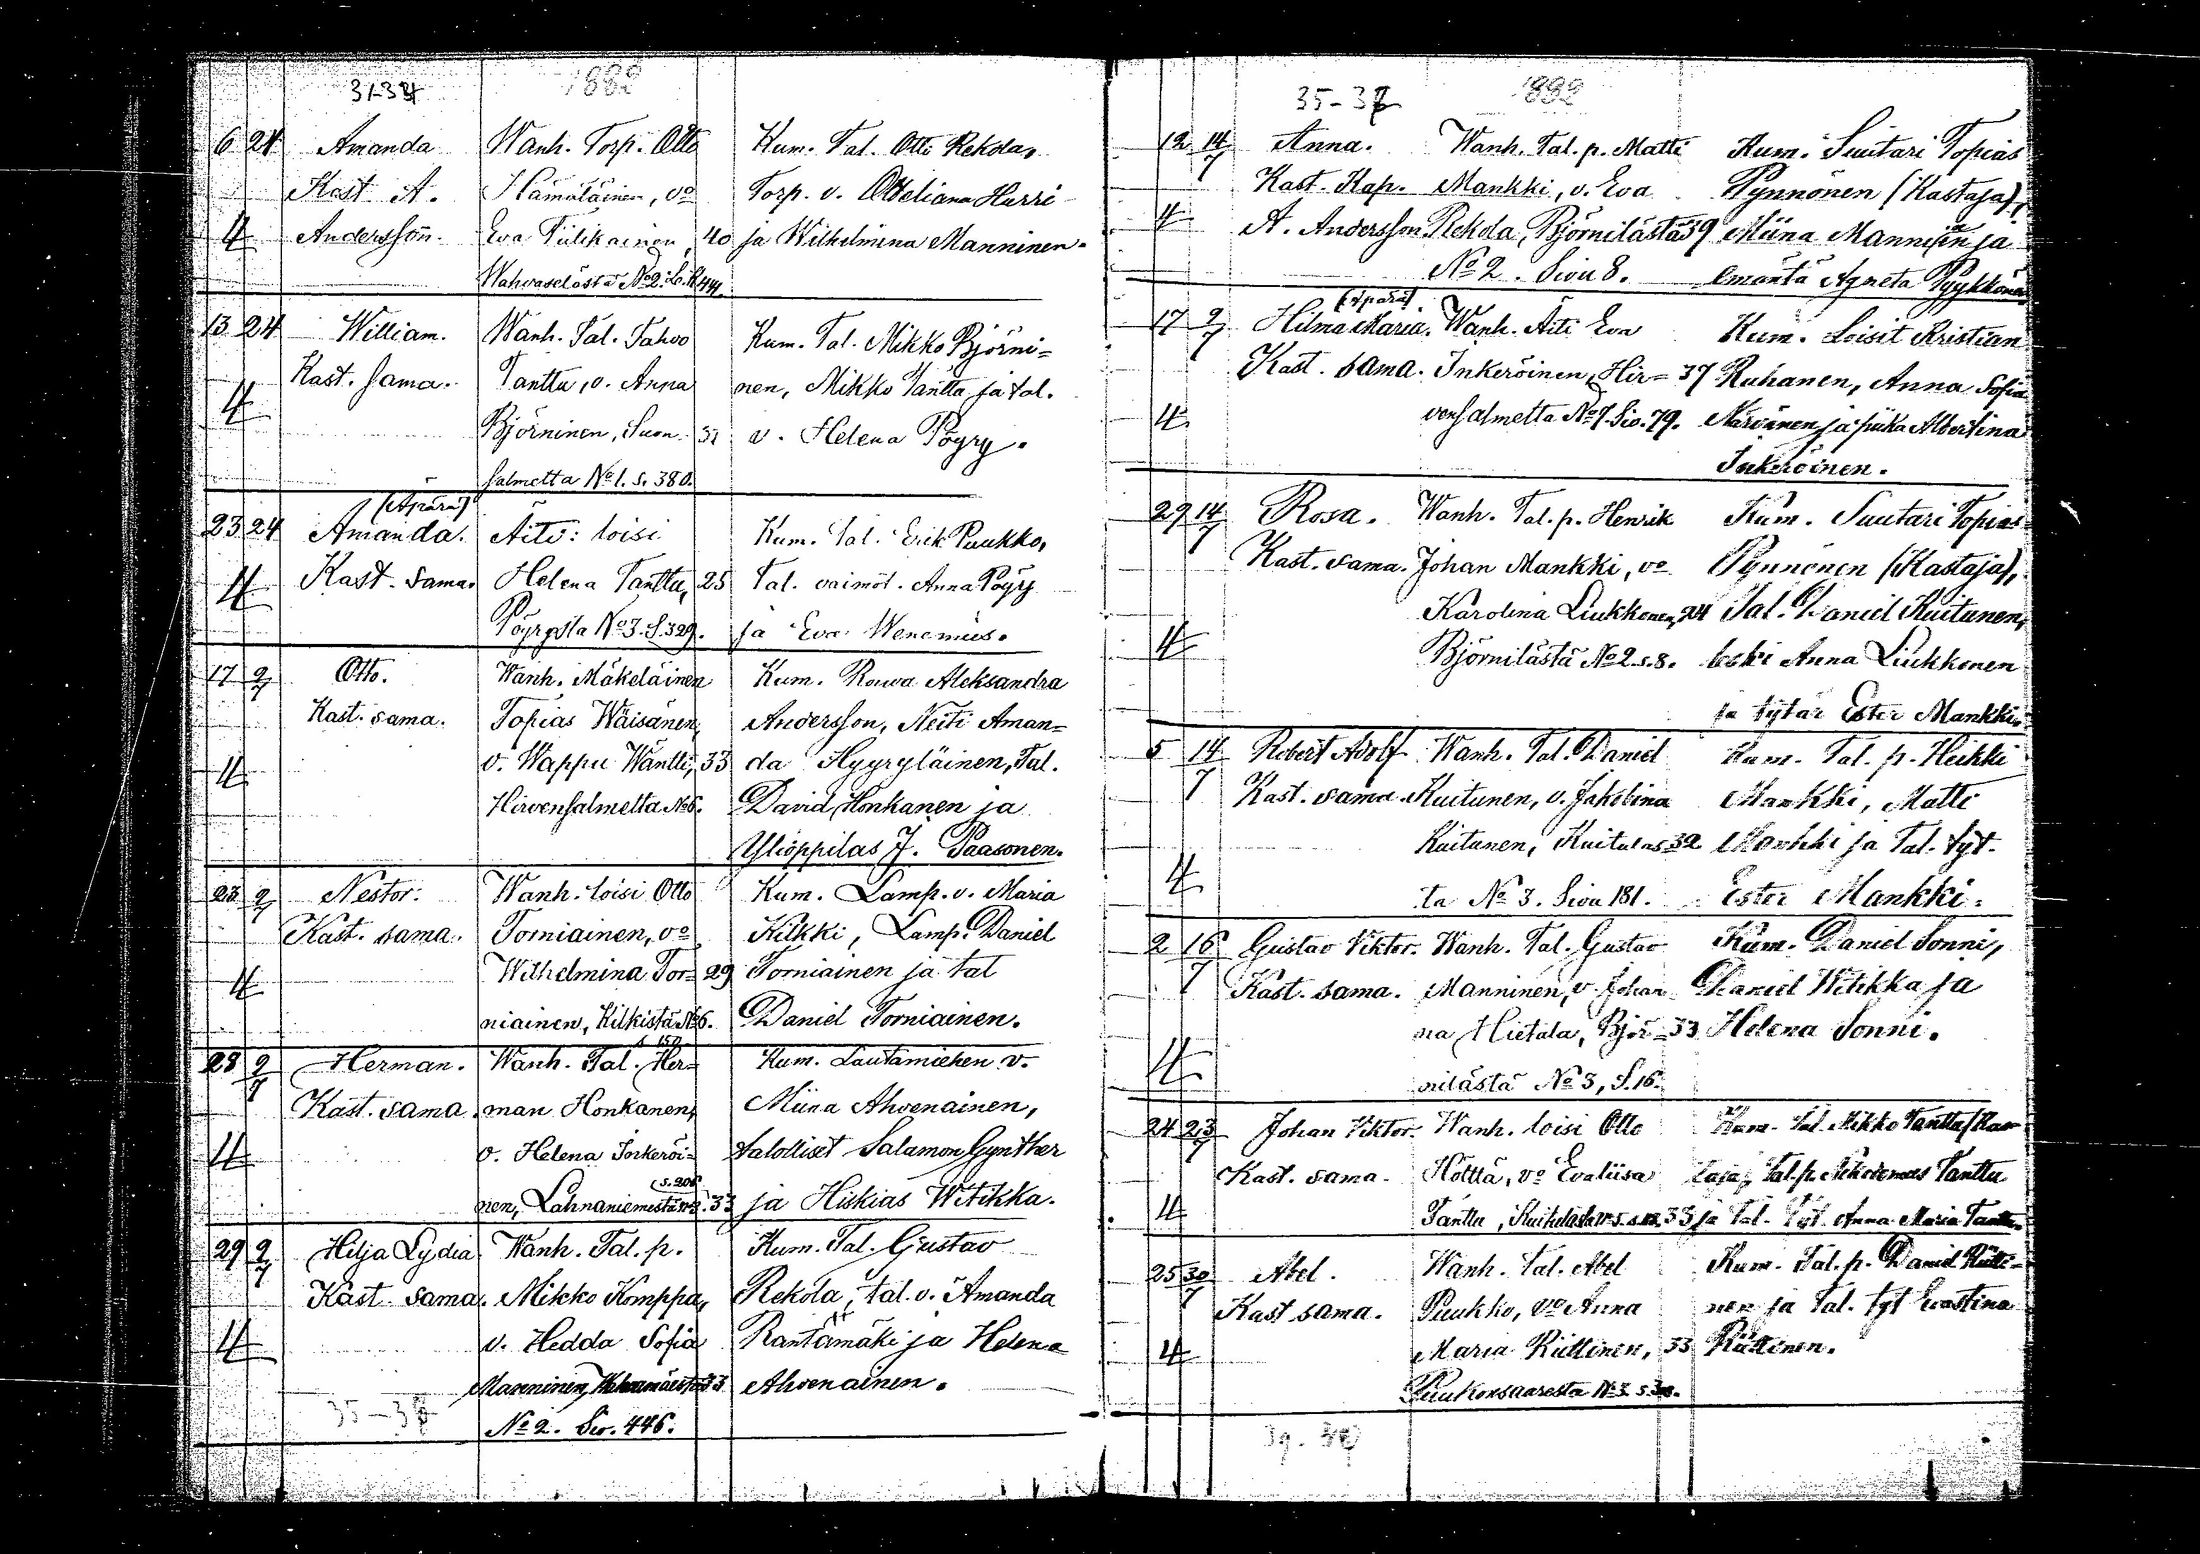 31-34 1882
6 24 Amanda Wanh. Torp. Otto Kum. Tal. Otto Rekola,
Kast A. Hämäläinen, vo Torp. v. Otteliana Hurri
4 Andersson. Eva Tulikainen, 40 ja Wilhelmina Manninen.
Wahvaselästä No 2.
13 24 William. Wanh. Tal. Tahvo Kum. Tal. Mikko Björni=
Kast. sama. Tanttu, v. Anna nen, Mikko Tanttu ja tal.
4 Björninen, Suon- 37 v. Helena Pöyry.
salmelta No 1. s. 380.
(Äpärä)
23 24 Amanda. Äiti: loisi Kum. Tal. Erik Puukko,
4 Kast. sama. Helena Tanttu, 25 Tal. vaimot. Anna Pöyry
Pöyrystä No 3. S. 329. ja Eva Wenemies.
17 2/7 Otto. Wanh. Mäkeläinen Kum. Rouva Aleksandra
Kast. sama. Topias Wäisänen, Andersson, Neiti Aman=
4 v. Wappu Wäntti, 33 da Hyyryläinen, Tal.
Hirvensalmelta No 6. David Honkanen ja
Ylioppilas J. Paasonen.
23 2/7 Nestor. Wanh. loisi Otto Kum. Lamp. v. Maria
Kast. sama. Torniainen, vo Kilkki, Lamp. Daniel
4 Wilhelmina Tor= 29 Torniainen ja tal
niainen, Kilkistä No 6. Daniel Torniainen.
s. 150
28 2/7 Herman. Wanh. Tal. Her= Kum. Lautamiehen v.
Kast. sama man Honkanen, Miina Ahvenainen,
4 v. Helena Inkeröi= talolliset Salamon Gynther
nen, Lahnaniemestä 33 ja Hiskias Witikka.
29 2/7 Hilja Lydia Wanh. Tal. p. Kum. Tal. Gustav
Kast. sama. Mikko Komppa, Rekola, tal. v. Amanda
4 v. Hedda Sofia Rantamäki ja Helena
Manninen, 33 Ahvenainen.
35-38 No 2. Siv. 446.
35-38 1882
12 14/7 Anna. Wanh. Tal. p. Matti Kum. Suutari Topias
Kast. Kap. Mankki, v. Eva Pynnönen (Kastaja),
4 A. Andersson Rekola, Björnilästä 39 Miina Manninen ja
No 2. Sivu 8. emäntä Agneta Pyykkönen
(Äpärä)
17 2/7 Hilma Maria. Wanh. Äiti Eva Kum. Loisit Kristian
Kast. sama. Inkeröinen, Hir= 37 Ruhanen, Anna Sofia
4 vensalmelta No 7. Siv. 79. Närvänen ja piika Albertina
Inkeröinen.
29 14/7 Rosa. Wanh. Tal. p. Henrik Kum. Suutari Topias
Kast. sama. Johan Mankki, vo Pynnönen (Kastaja),
Karolina Liukkonen, 24 Tal. Daniel Kuitunen,
4 Björnilästä No 2 s. 8. leski Anna Liukkonen
ja tytär Ester Mankki.
5 14/7 Robert Adolf Wanh. Tal. Daniel Kum. Tal. p. Heikki
Kast. sama. Kuitunen, v. Jakobina Mankki, Matti
Kuitunen, Kuitulas 32 Mankki ja Tal. tyt.
4 ta No 3. Sivu 181. Ester Mankki.
2 16/7 Gustav Viktor. Wanh. Tal. Gustav Kum. Daniel Sonni,
Kast. sama. Manninen, v. Johan Daniel Witikka ja
na Hietala, Björ= 33 Helena Sonni.
4 nilästä No 3, S. 16.
24 23/7 Johan Viktor. Wanh. loisi Otto Kum. Tal. Mikko Tanttu (Kas
Kast. sama. Hölttä, vo Evaliisa taja), Tal. p. Nikodemus Tanttu
4 Tanttu, 33 ja Tal. tyt. Anna Maria Tanttu.
25 30/7 Abel. Wanh. Tal. Abel Kum. Tal. p. Daniel Rütti=
Kast. sama. Puukko, vo Anna nen ja Tal. tyt Evastina
4 Maria Rüttinen, 33 Rüttinen.
Puukonsaaresta No 3
39.